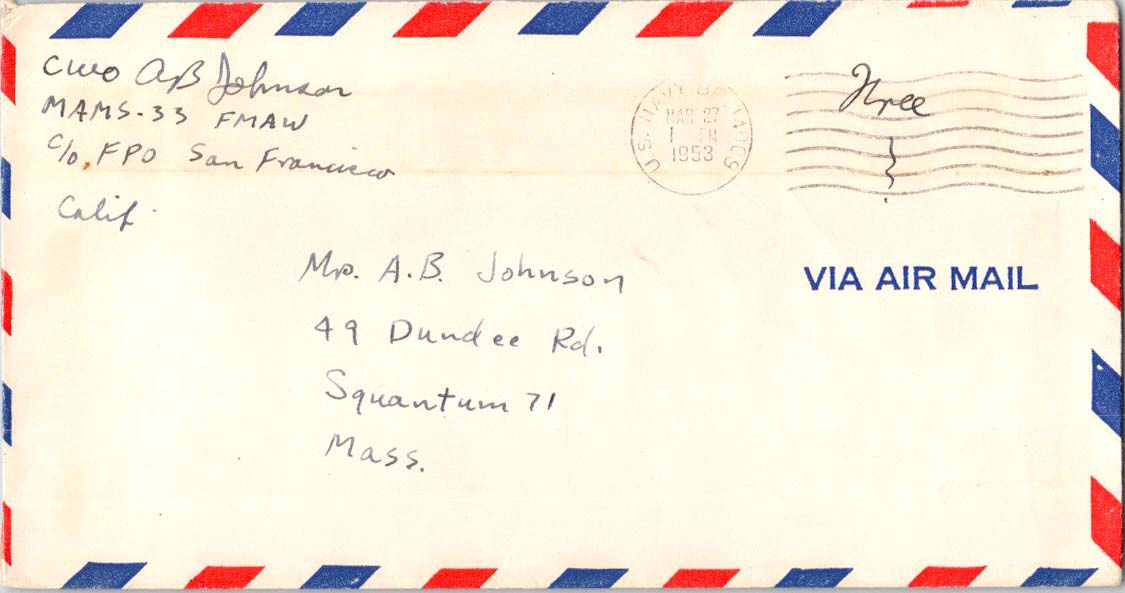 CWO A B Johnson
MAMS-33 FMAW
C/o, FPO San Francisco
Calif.
U.S. NAVY
MAR 27
1
1953
Free
VIA AIR MAIL
Mrs. A.B. Johnson
49 Dundee Rd.
Squantum 71
Mass.